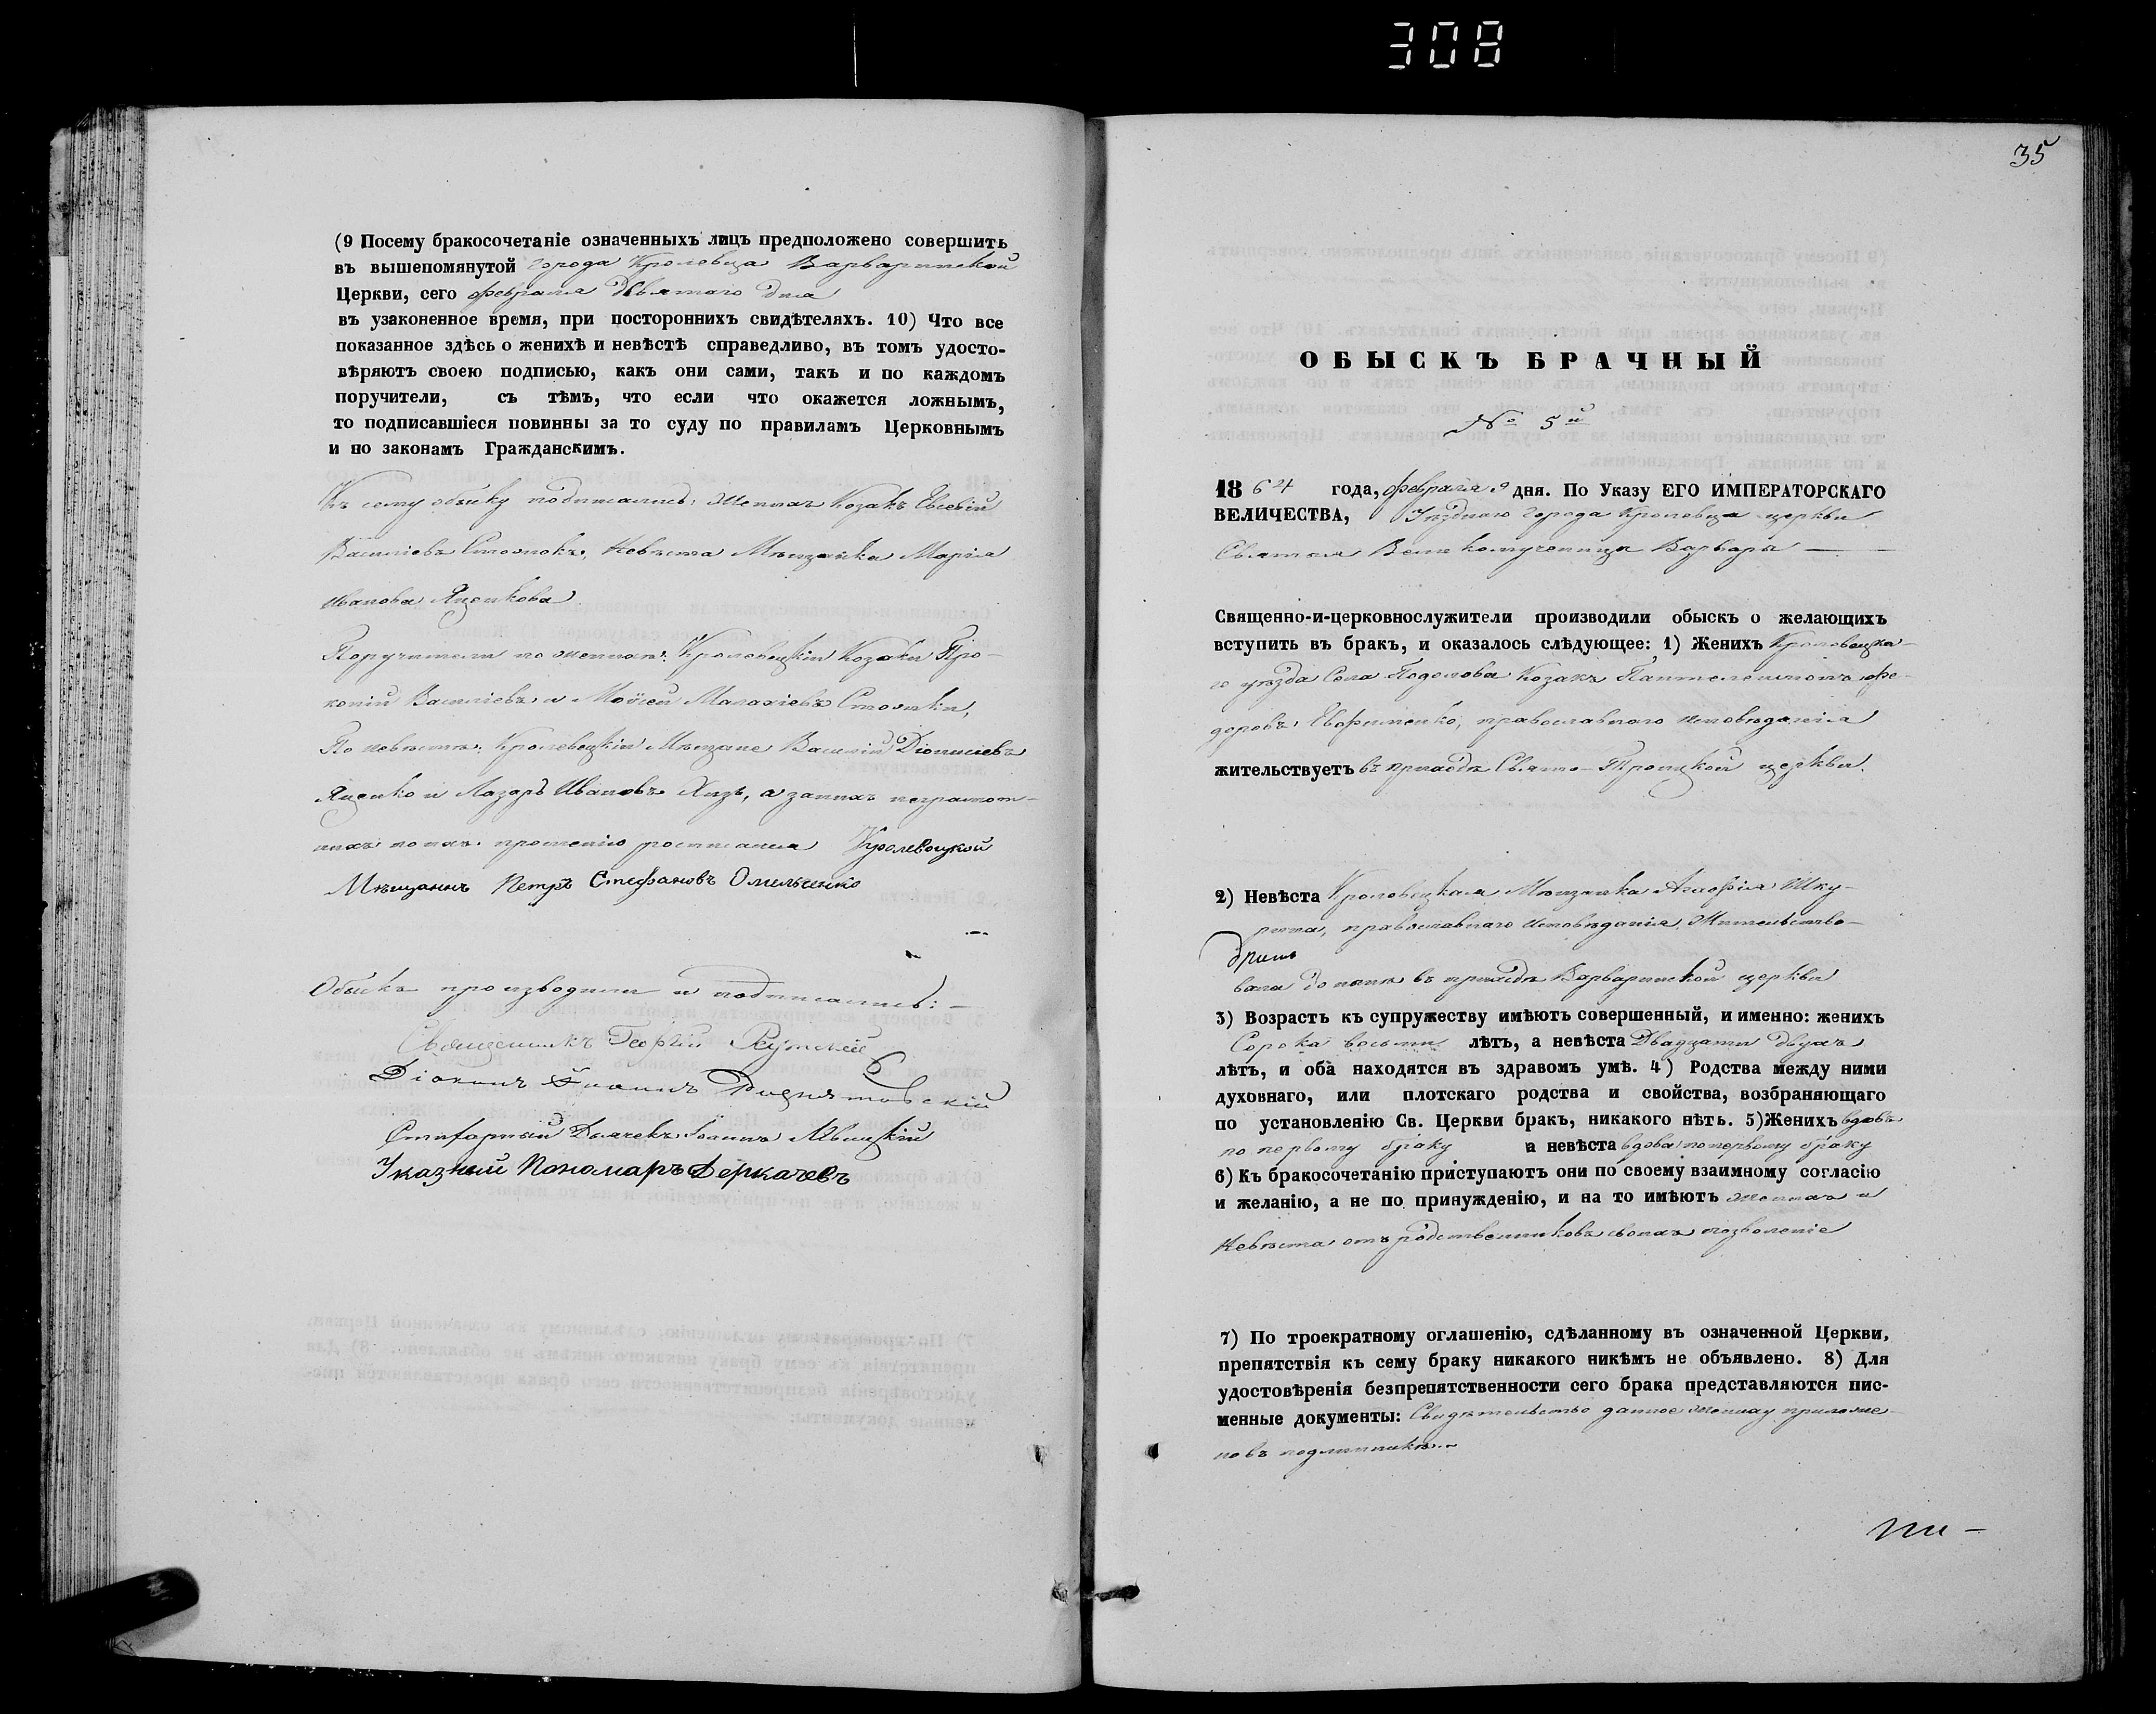 308
(9 Посему бракосочетаніе означенныхъ лицъ предположено совершить
въ вышепомянутой города Кролевца Варваринской
Церкви, сего февраля девятаго дня
въ узаконенное время, при постороннихъ свидѣтеляхъ. 10) Что все
показанное здѣсь о женихѣ и невѣстѣ справедливо, въ томъ удосто-
вѣряютъ своею подписью, какъ они сами, такъ и по каждомъ
поручители, съ тѣмъ, что если что окажется ложнымъ,
то подписавшіеся повинны за то суду по правиламъ Церковнымъ
и по законамъ Гражданскимъ.
Къ сему обыску подписались: Женихъ Козакъ Евсевій
Василіевъ Невѣста Мѣщанка Марія
Иванова Яценкова
Поручители по женихѣ: Кролевецкіи Козаки Про-
копій Василіевъ и Моисей Малахіевъ
По невѣстѣ: Кролевецкіи Мѣщане Василій Діонисіевъ
Яценко и Лазарь Ивановъ а за нихъ неграмот-
ныхъ по ихъ прошенію росписался Кролевецкой
Мѣщанинъ Петръ Стефановъ Омельченко
Обыскъ производили и подписались: —
Священникъ Георгій
Діаконъ Іоаннъ
Стихарный Дьячекъ Іоаннъ
Указный Пономарь Деркачевъ
35
ОБЫСКЪ БРАЧНЫЙ
№ 5й
1864 года, февраля 9 дня. По Указу ЕГО ИМПЕРАТОРСКАГО
ВЕЛИЧЕСТВА, Уѣзднаго города Кролевца церкви
Святыя Великомученицы Варвары —
Священно-и-церковнослужители производили обыскъ о желающихъ
вступить въ бракъ, и оказалось слѣдующее: 1) Женихъ Кролевецка-
го уѣзда Села Подолова Козакъ Пантелеимонъ Фе-
доровъ Евфименко, православнаго исповѣданія
жительствуетъ въ приходѣ Свято-Троицкой церкви.
2) Невѣста Кролевецкая Мѣщанка Агафія Шку-
рина, православнаго исповѣданія, Жительство-
вала до нынѣ въ приходѣ Варваринской церкви
3) Возрастъ къ супружеству имѣютъ совершенный, и именно: женихъ
Сорока восьми лѣтъ, а невѣста Двадцати двухъ
лѣтъ, и оба находятся въ здравомъ умѣ. 4) Родства между ними
духовнаго, или плотскаго родства и свойства, возбраняющаго
по установленію Св. Церкви бракъ, никакого нѣтъ. 5) Женихъ вдовъ
по первому браку а невѣста вдова по первому браку
6) Къ бракосочетанію приступаютъ они по своему взаимному согласію
и желанію, а не по принужденію, и на то имѣютъ женихъ и
Невѣста отъ родственниковъ своихъ позволеніе
7) По троекратному оглашенію, сдѣланному въ означенной Церкви,
препятствія къ сему браку никакого никѣмъ не объявлено. 8) Для
удостовѣренія безпрепятственности сего брака представляются пис-
менные документы: Свидѣтельство данное жениху приложе-
но въ подлинникѣ.